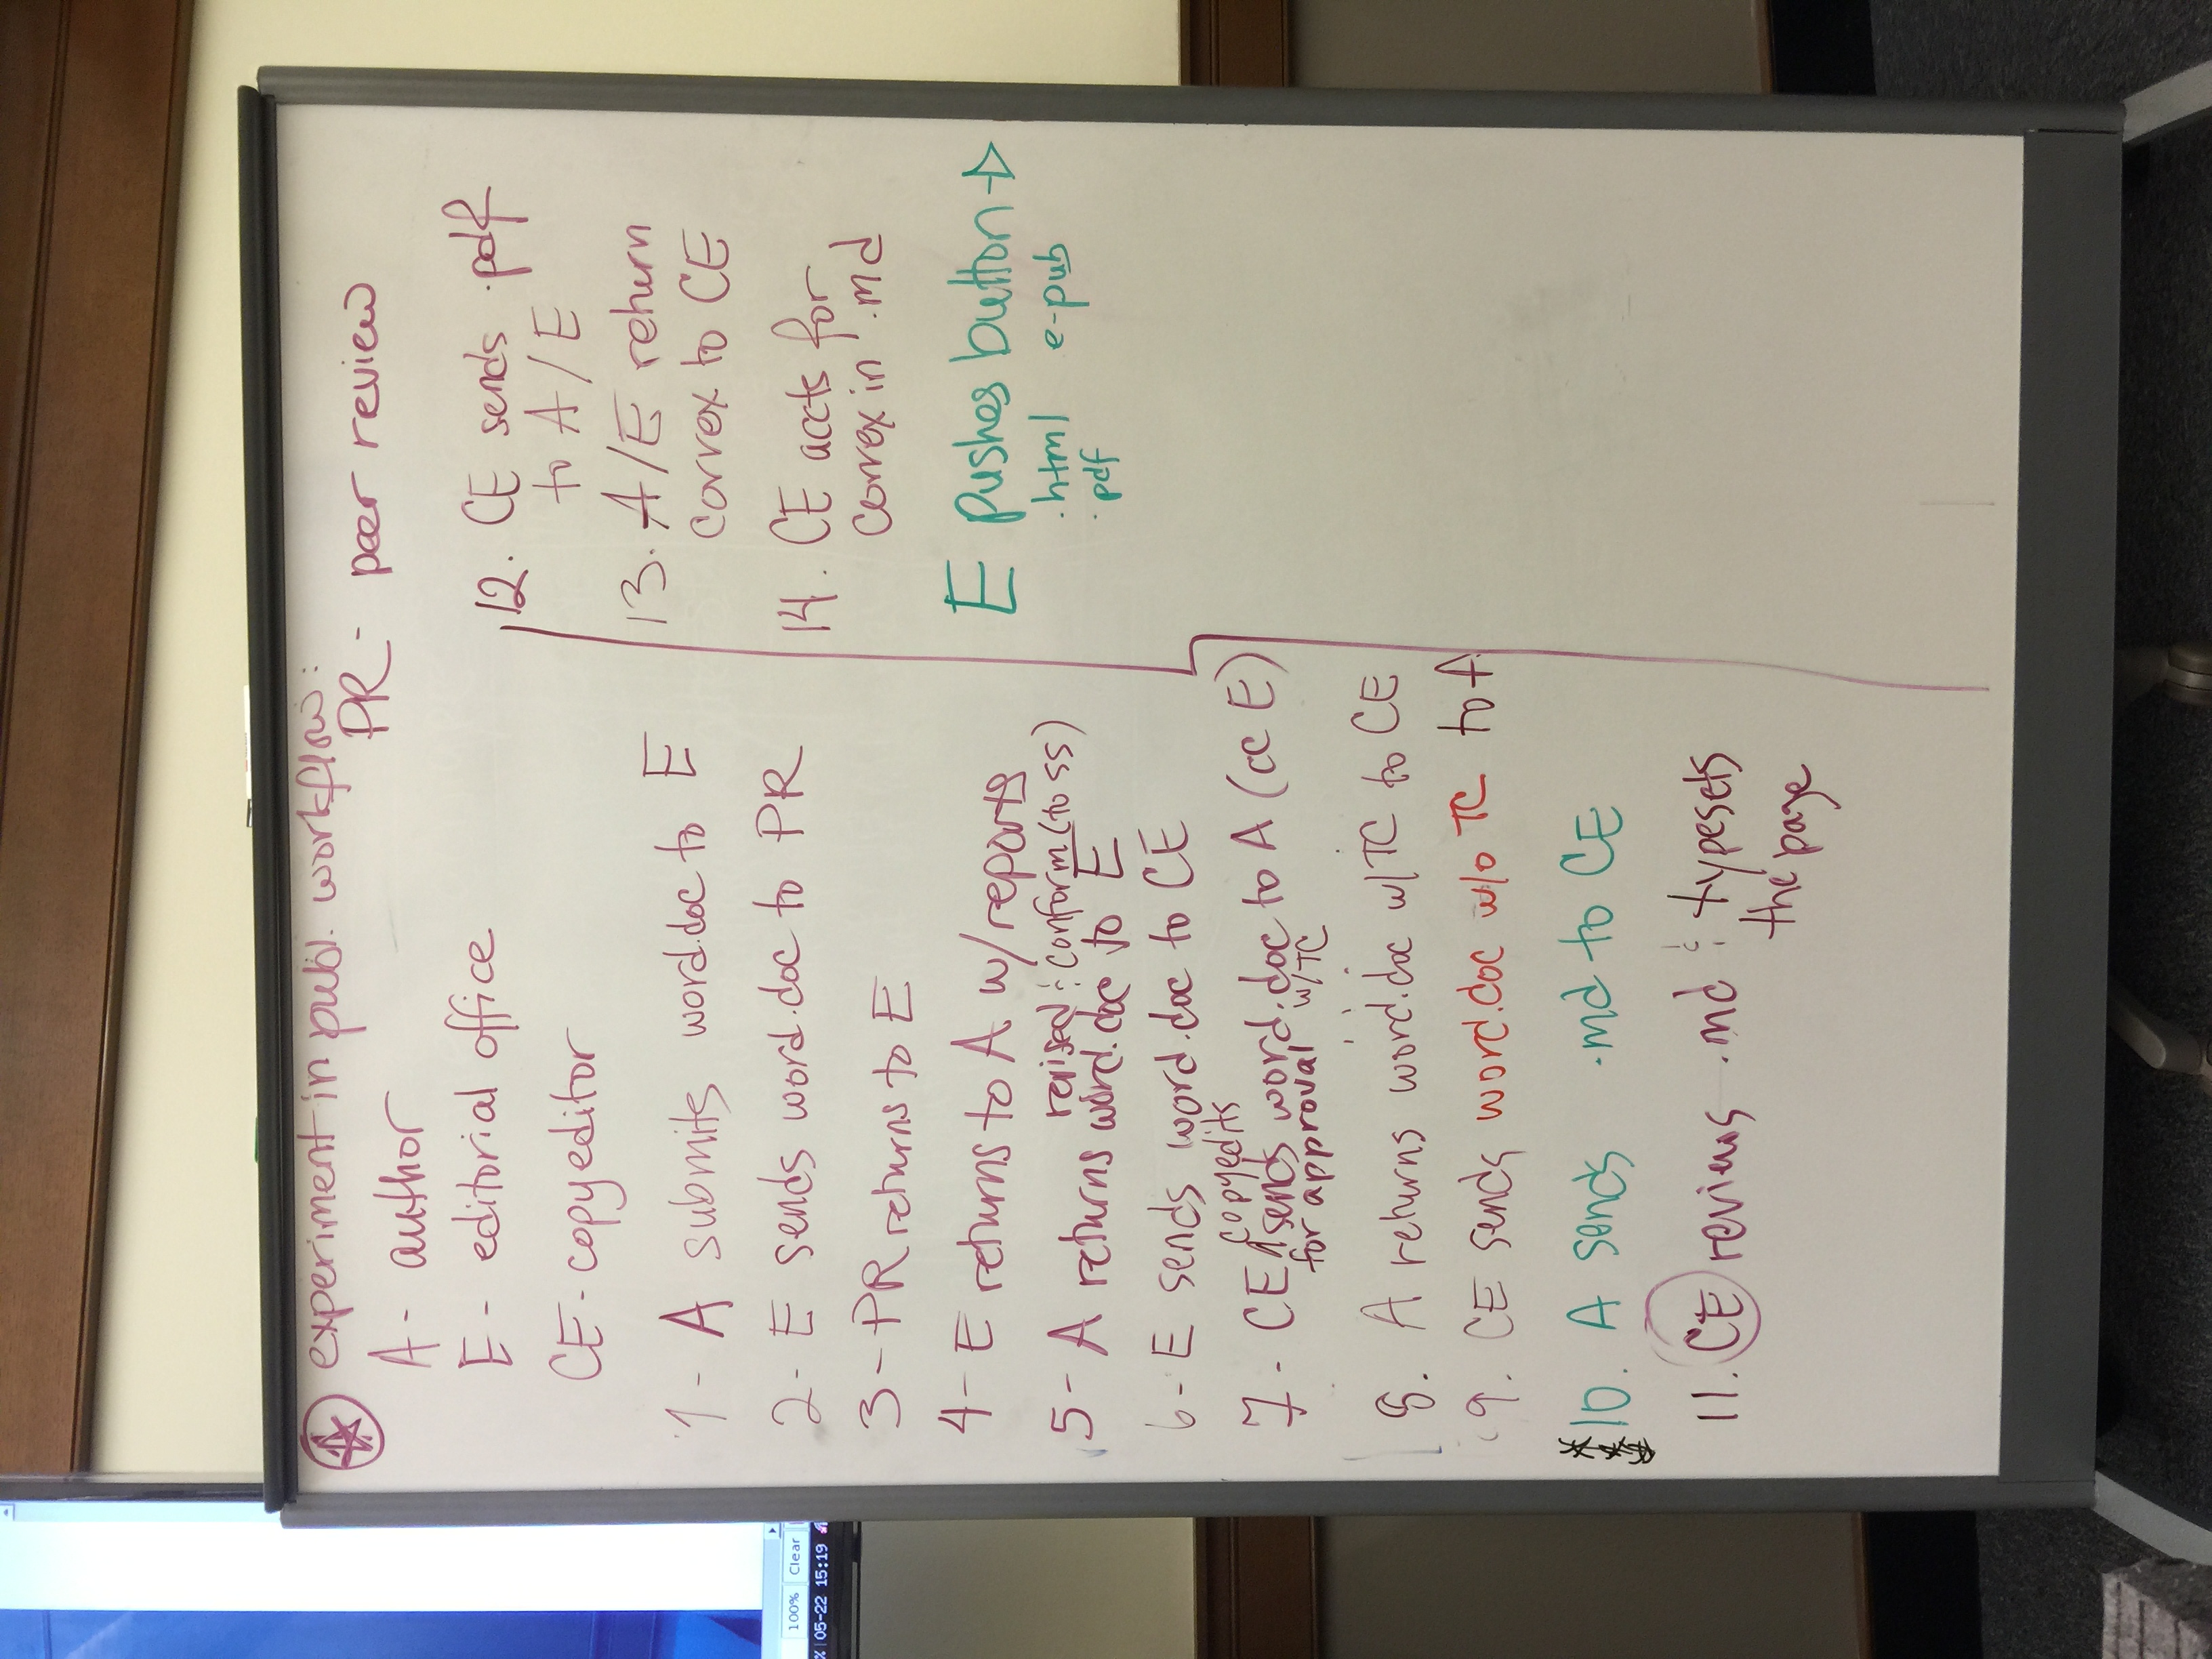 experiment in publ. workflow:
PR - peer review
A - author
E - editorial office
CE - copyeditor
1 - A submits word.doc to E
2 - E sends word.doc to PR
3 - PR returns to E
4 - E returns to A w/reports
revised & conform (to SS)
5 - A returns word.doc to E
6 - E sends word.doc to CE
copyedits
7 - CE ^ sends word.doc to A (cc E)
for approval w/TC
8. A returns word.doc w/TC to CE
9. CE sends word.doc w/o TC to A
10. A sends .md to CE
11. CE reviews .md & typesets
the page
12. CE sends .pdf
to A/E
13. A/E return
correx to CE
14. CE accts for
correx in .md
E pushes button →
.html e-pub
.pdf
100% Clear
% 05-22 15:19